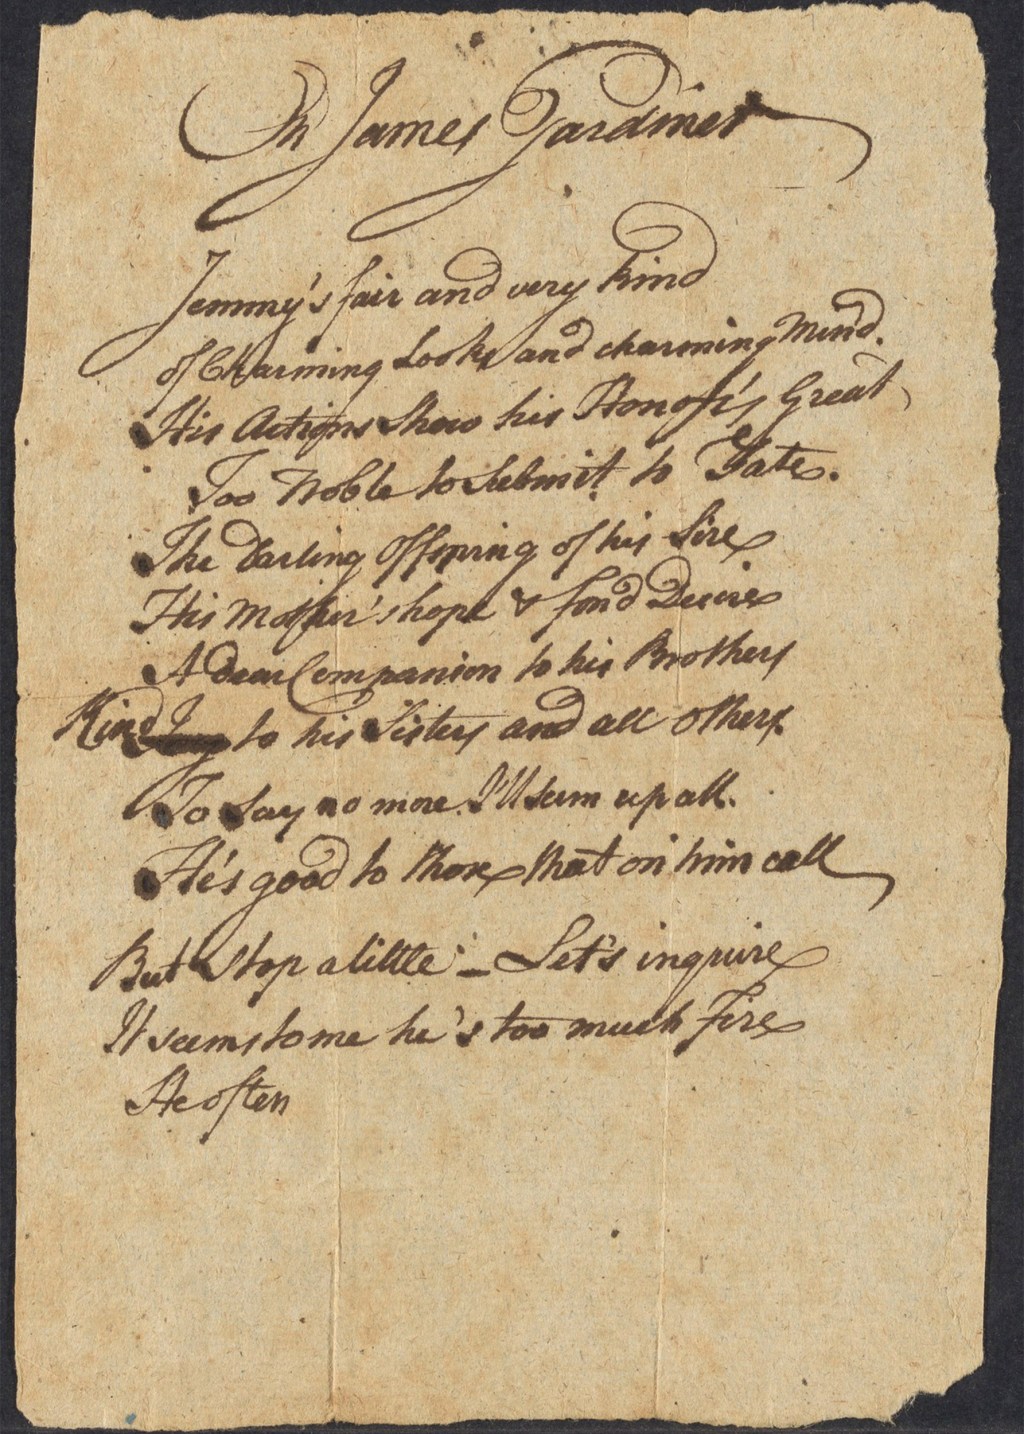 On James Gardiner
Jemmy's fair and very kind
of Charming Looks and charming Mind.
His Actions Show his Honor's Great
Too Noble to Submit to Fate.
The darling Offspring of his Sire
His Mother's hope & fond Desire
A dear Companion to his Brothers
Kind to his Sisters and all others.
To Say no more I'll sum up all.
He's good to those that on him call
But stop a little – Let's inquire
It seems to me he's too much Fire
He often